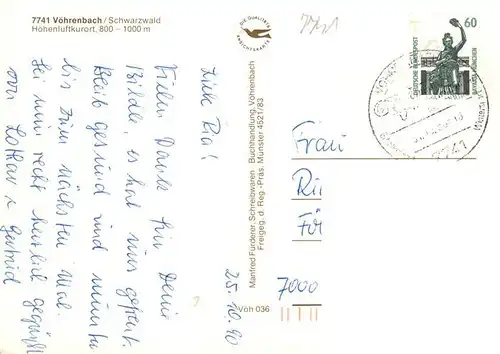 7741 Vöhrenbach / Schwarzwald
Höhenluftkurort, 800 – 1000 m
DIE QUALITÄTS
ANSICHTSKARTE
7741
60
DEUTSCHE BUNDESPOST
BAVARIA MÜNCHEN
7741
25.10.90
Liebe Ria!
Vielen Dank für Deine
Bilder, es hat uns gefreut.
Bleib gesund und munter
bis zum nächsten Mal.
Sei nun recht herzlich gegrüßt
von Lothar u. Gertrud
Manfred Furderer, Schreibwaren Buchhandlung, Vöhrenbach
Freigeg. d. Reg.-Präs. Münster 4521/83
Vöh 036
Frau
7000